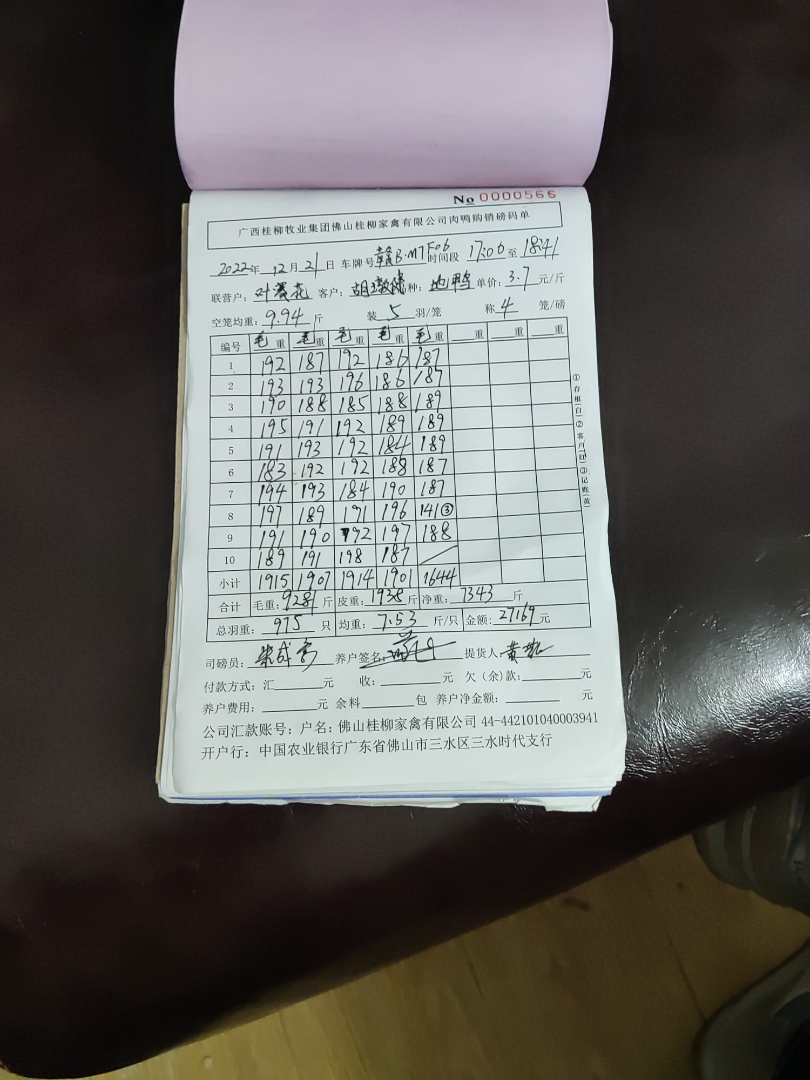 No 0000566
广西桂柳牧业集团佛山桂柳家禽有限公司肉鸭购销磅码单
2022年 12月 21日 车牌号 赣B·M7F06 时间段 17:06 至 18:41
联营户: 叶赛花 客户: 胡 种: 地鸭 单价: 3.7 元/斤
空笼均重: 9.94 斤 装 5 羽/笼 称 4 笼/磅
编号 毛重 毛重 毛重 毛重 毛重 重 重 重
1 192 187 192 186 187
2 193 193 196 186 187
3 190 188 185 188 189
4 195 191 192 189 189
5 191 193 192 184 189
6 183 192 192 188 187
7 194 193 184 190 187
8 197 189 191 196 141③
9 191 190 192 197 188
10 189 191 198 187
小计 1915 1907 1914 1901 1644
合计 毛重: 9281 斤 皮重: 1938 斤 净重: 7343 斤
总羽重: 975 只 均重: 7.53 斤/只 金额: 27169 元
司磅员: 养户签名: 提货人: 黄
付款方式: 汇 元 收: 元 欠(余)款: 元
养户费用: 元 余料 包 养户净金额: 元
公司汇款账号: 户名: 佛山桂柳家禽有限公司 44-442101040003941
开户行: 中国农业银行广东省佛山市三水区三水时代支行
①存根(白)②客户(红)③记账(黄)